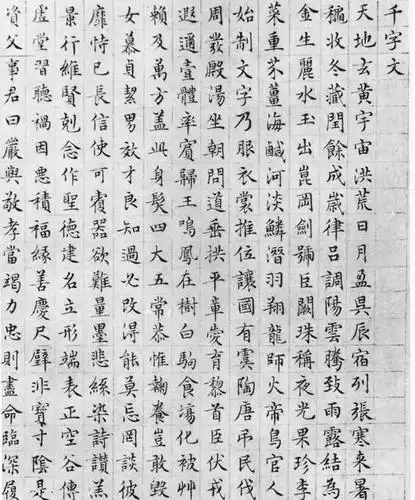 千字文
天地玄黄宇宙洪荒日月盈昃辰宿列張寒来暑
穐收冬藏閏餘成歲律呂調陽雲騰致雨露結為
金生麗水玉出崑岡劍號巨闕珠稱夜光果珍李
菜重芥薑海鹹河淡鱗潛羽翔龍師火帝鳥官人
始制文字乃服衣裳推位讓國有虞陶唐弔民伐
周發殷湯坐朝問道垂拱平章愛育黎首臣伏戎
遐邇壹體率賓歸王鳴鳳在樹白駒食場化被艸
賴及萬方蓋此身髮四大五常恭惟鞠養豈敢毀
女慕貞絜男效才良知過必改得能莫忘罔談彼
靡恃己長信使可覆器欲難量墨悲絲染詩讚羔
景行維賢剋念作聖德建名立形端表正空谷傳
虛堂習聽禍因惡積福緣善慶尺璧非寶寸陰是
資父事君曰嚴與敬孝當竭力忠則盡命臨深履